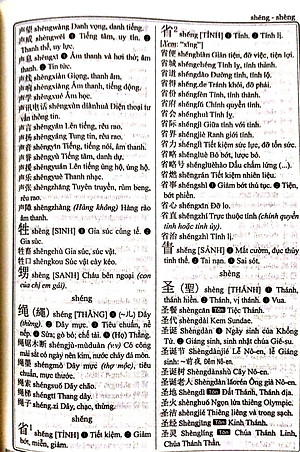 shéng - shèng
声望 shēngwàng Danh vọng, danh tiếng.
声威 shēngwēi ❶ Tiếng tăm, uy tín. ❷
Thanh thế, uy lực.
声息 shēngxī ❶ Âm thanh và hơi thở; âm
thanh. ❷ Tin tức.
声线 shēngxiàn Giọng, thanh âm.
声响 shēngxiǎng Âm thanh, tiếng động.
声学 shēngxué Âm học.
声讯电话 shēngxùn diànhuà Điện thoại tư
vấn thông tin.
声言 shēngyán Lên tiếng, rêu rao.
声扬 shēngyáng Tung tin, rêu rao.
声音 shēngyīn Tiếng, tiếng nói, âm thanh.
声誉 shēngyù Tiếng tăm, danh dự.
声援 shēngyuán Lên tiếng ủng hộ, ủng hộ.
声乐 shēngyuè Thanh nhạc.
声张 shēngzhāng Tuyên truyền, rùm beng,
rêu rao.
声障 shēngzhàng (Hàng không) Hàng rào
âm thanh.
牲 shēng [SINH] ❶ Gia súc cúng tế. ❷
Gia súc.
牲畜 shēngchù Gia súc, súc vật.
牲口 shēngkou Súc vật cày kéo.
甥 shēng [SANH] Cháu bên ngoại (con
của chị em gái).
shéng
绳 (繩) shéng [THẰNG] ❶ (~儿) Dây
(thừng). ❷ Dây mực. ❸ Tiêu chuẩn, nề
nếp. ❹ Sửa; gò bó; chế tài. ❺ (Họ) Thằng.
绳锯木断 shéngjù-mùduàn
mài sắt có ngày nên kim, nước chảy đá mòn.
绳墨 shéngmò Dây mực (thợ mộc), tiêu
chuẩn, mực thước.
绳索 shéngsuǒ Dây chão.
绳梯 shéngtī Thang dây.
绳子 shéng.zi Dây, chạc, thừng.
shěng
省¹ shěng [TỈNH] ❶ Tiết kiệm. ❷ Giảm
bớt, miễn, giảm.
省² shěng [TỈNH] ❶ Tỉnh. ❷ Tỉnh lị.
[Xem: "xǐng"]
省便 shěngbiàn Giản tiện, đỡ việc, tiện lợi.
省城 shěngchéng Tỉnh lỵ, tỉnh thành.
省道 shěngdào Đường tỉnh, tỉnh lộ.
省得 shěng.de Tránh khỏi, đỡ phải.
省份 shěngfèn Tỉnh, tỉnh thành.
省府 shěngfǔ Chính quyền tỉnh.
省会 shěnghuì Tỉnh lỵ.
省际 shěngjì Giữa tỉnh với tỉnh.
省界 shěngjiè Ranh giới tỉnh.
省力 shěnglì Tiết kiệm sức lực, đỡ tốn sức.
省略 shěnglüè Bỏ bớt, lược bỏ.
省略号 shěnglüèhào Dấu chấm lửng (...).
省燃 shěngrán Tiết kiệm nhiên liệu.
省事 shěngshì ❶ Giảm bớt thủ tục. ❷ Tiện,
bớt phiền.
省心 shěngxīn Đỡ lo.
省直 shěngzhí Trực thuộc tỉnh (chính quyền
tỉnh hoặc tỉnh ủy).
省治 shěngzhì Tỉnh lị.
眚 shěng [SẢNH] ❶ Mắt cườm, đục thủy
tinh thể. ❷ Tai nạn. ❸ Sai sót.
shèng
圣 (聖) shèng [THÁNH] ❶ Thánh,
thánh hiền. ❷ Vị, thánh. ❸ Vua.
圣餐 shèngcān Tôn Tiệc Thánh.
圣代 shèngdài Kem Sundae.
圣诞 Shèngdàn ❶ Ngày sinh của Khổng
Tử. ❷ Giáng sinh, sinh nhật chúa Giê-su.
圣诞节 Shèngdànjié Lễ Nô-en, lễ Giáng
sinh: ~前夜, Đêm Nô-en.
圣诞树 Shèngdànshù Cây Nô-en.
圣诞老人 Shèngdàn lǎorén Ông già Nô-en.
圣地 Shèngdì Tôn Đất Thánh, Thánh địa.
圣火 shènghuǒ Ngọn lửa thiêng Olympic.
圣洁 shèngjié Thiêng liêng và trong sạch.
圣经 Shèngjīng Tôn Kinh Thánh.
圣灵 Shènglíng Tôn Chúa Thánh Linh,
Chúa Thánh Thần.